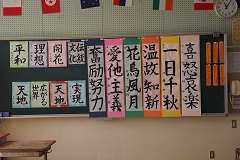 喜怒哀楽
一日千秋
温故知新
花鳥風月
愛他主義
奮励努力
伝統文化
開花
理想
平和
実現
天地
広がる世界
天地